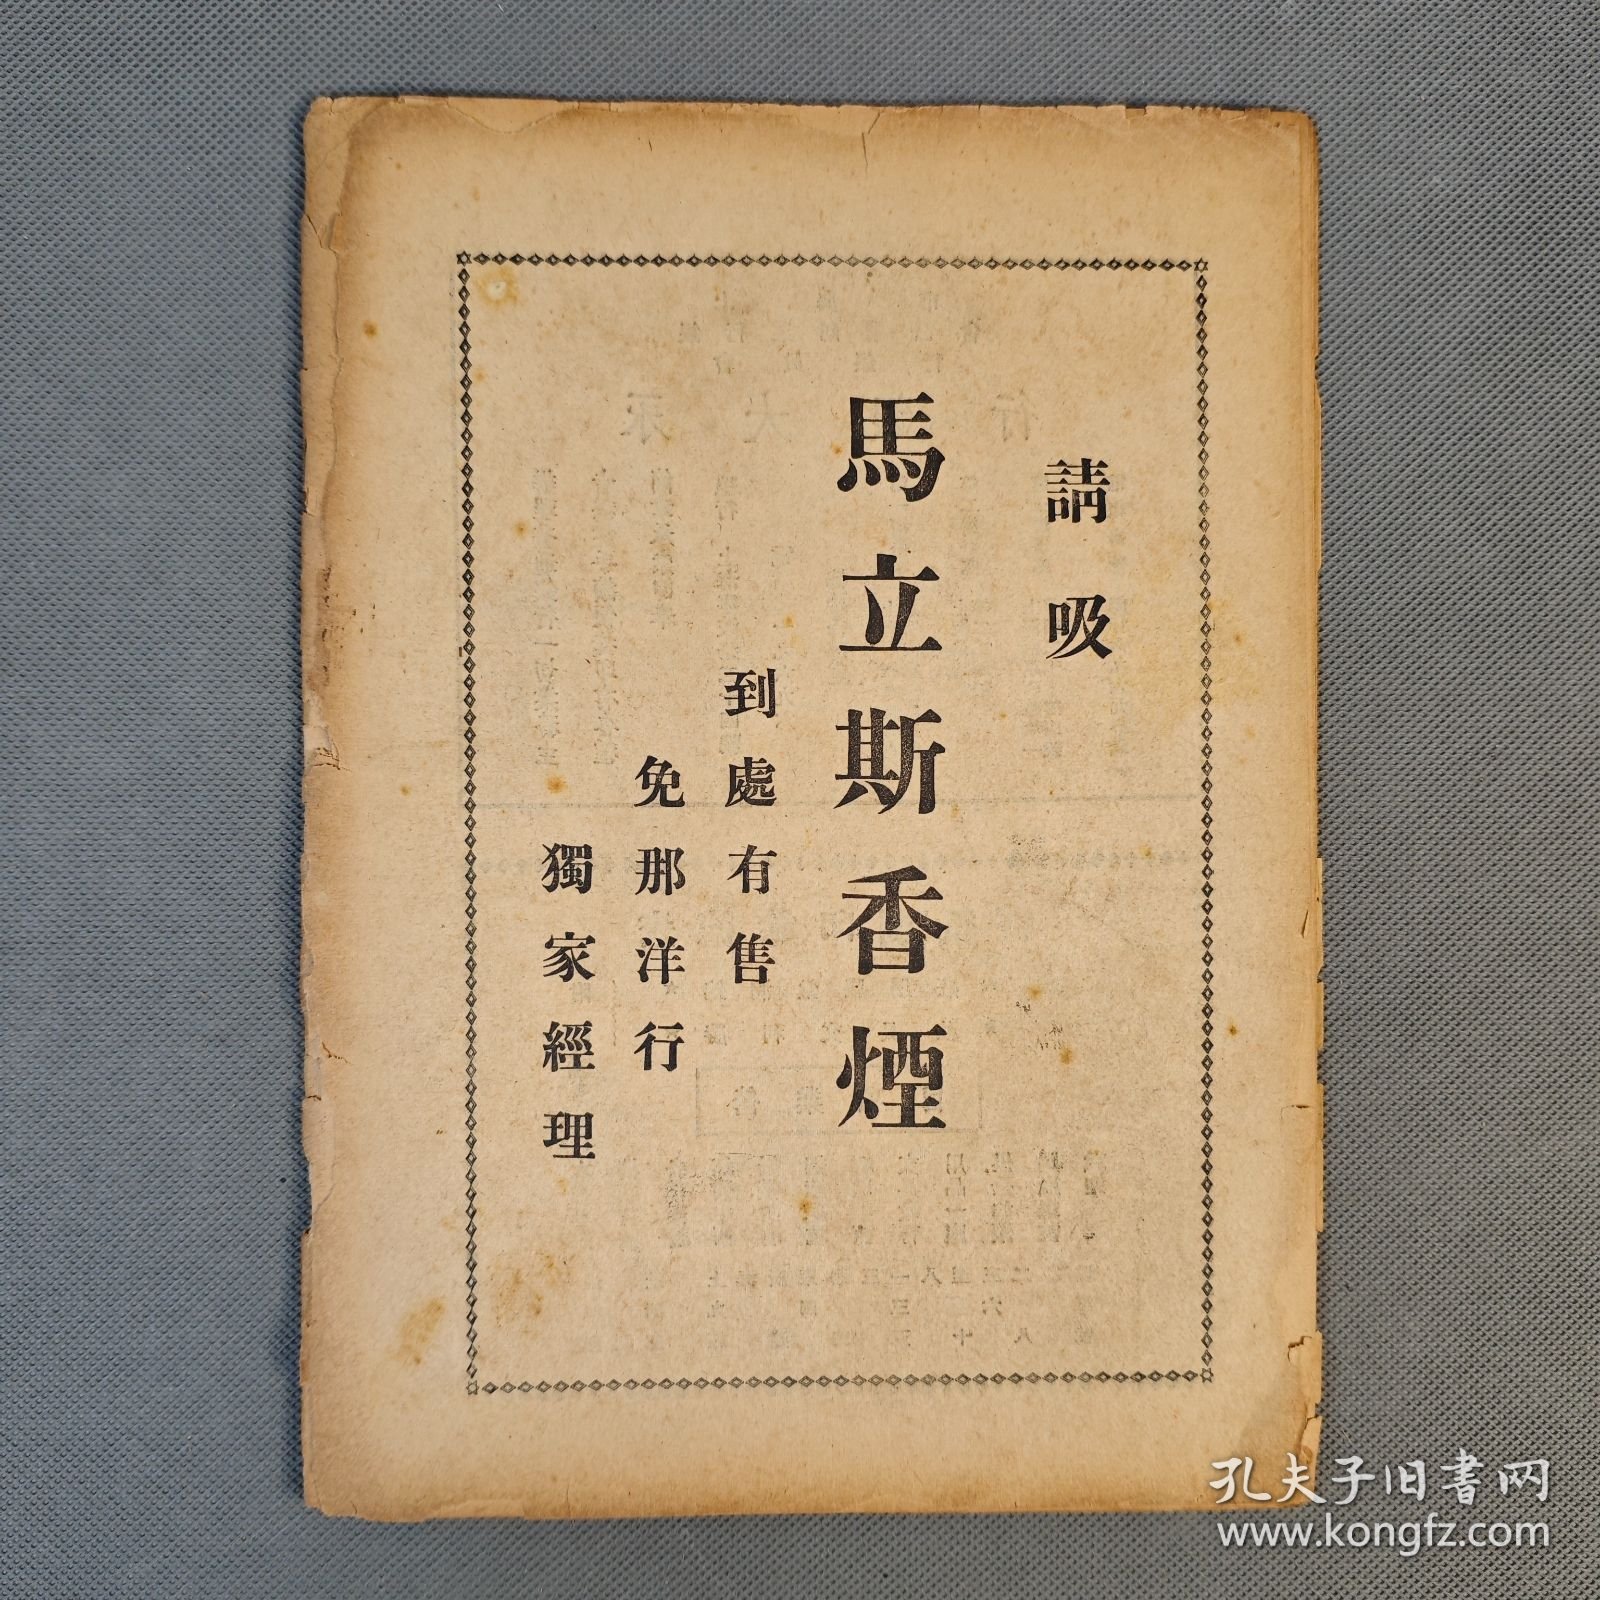 請吸
馬立斯香煙
到處有售
免那洋行
獨家經理
孔夫子旧书网
www.kongfz.com